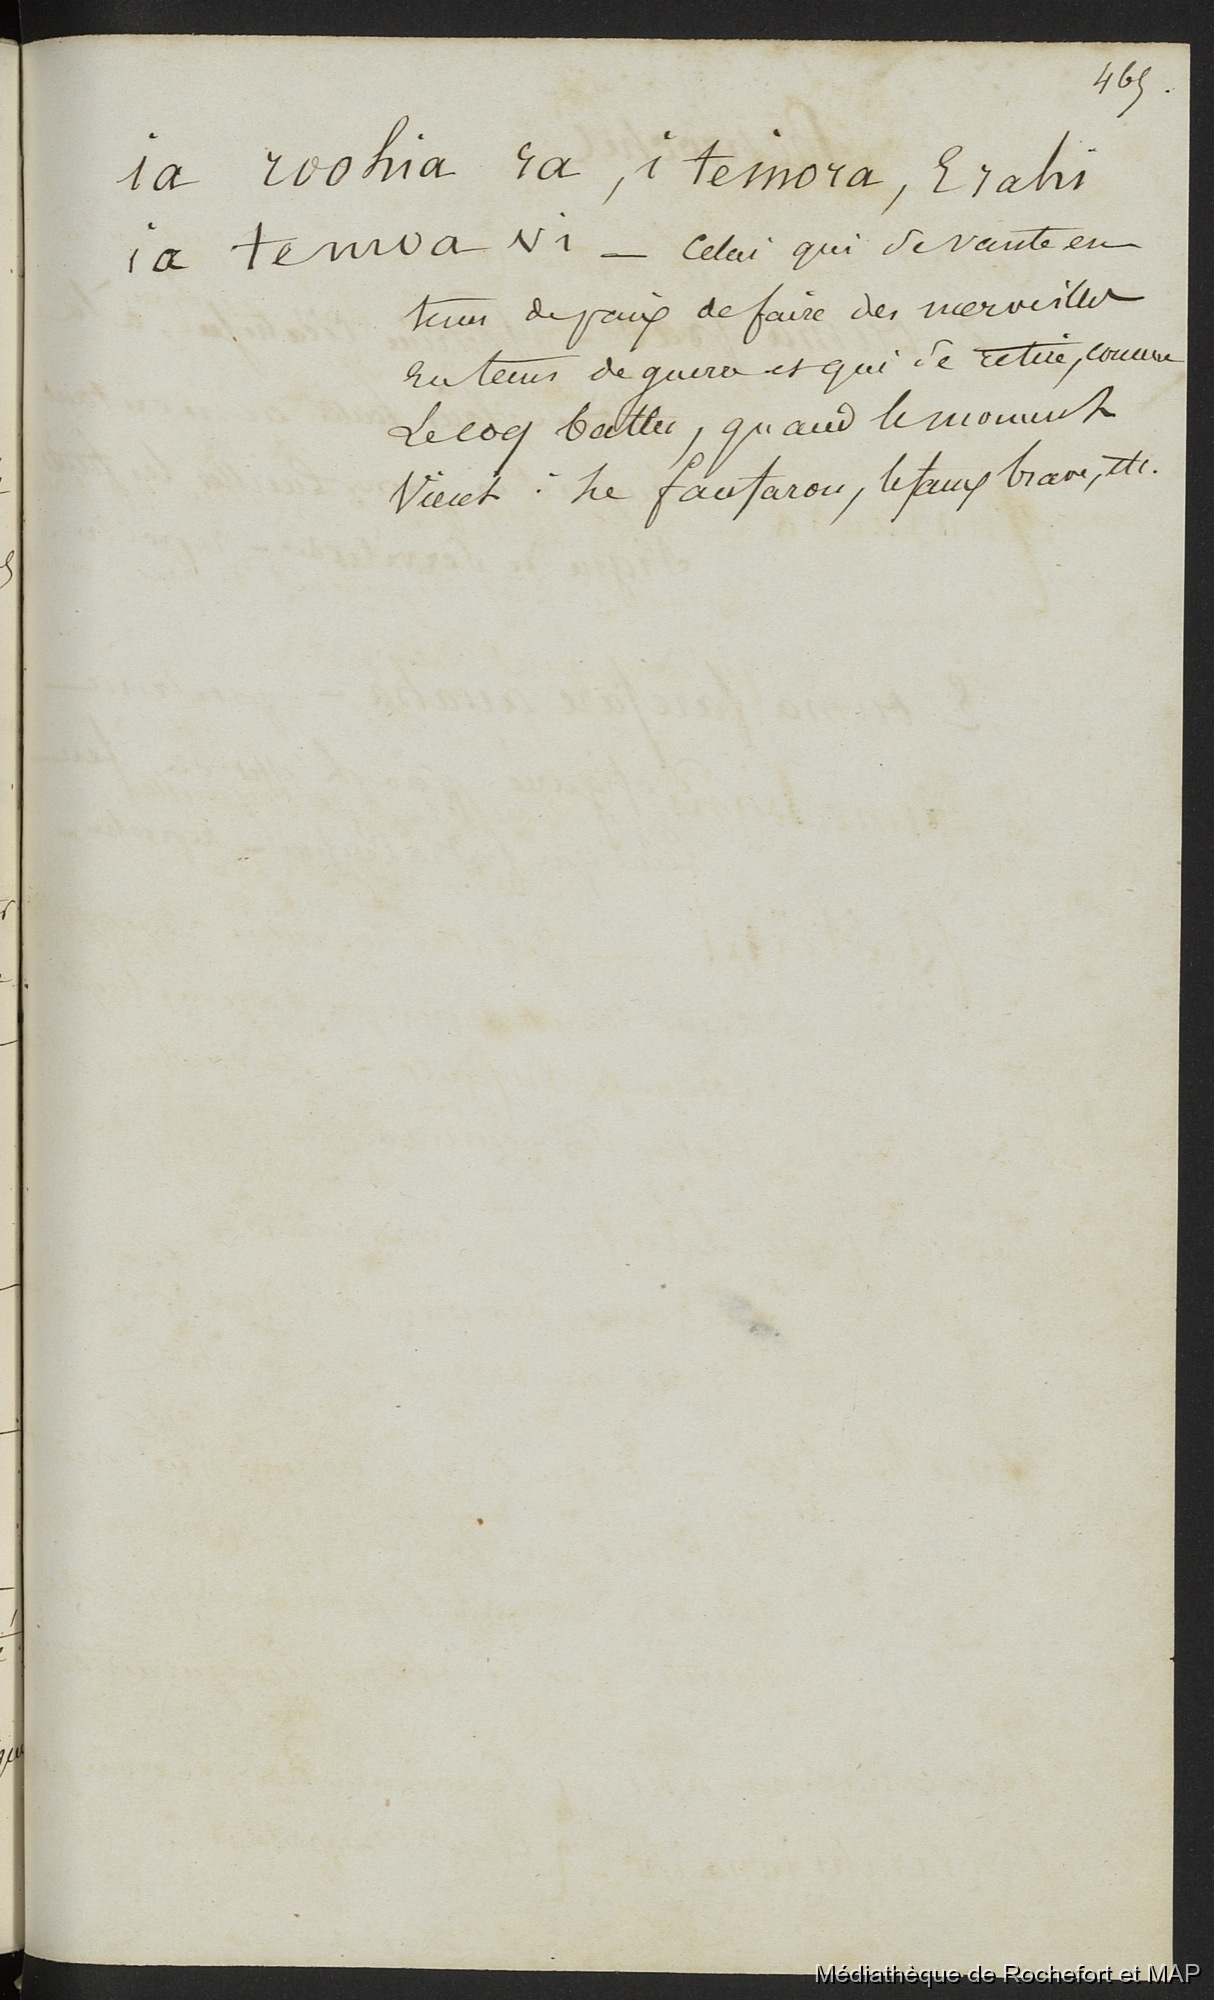 465.
ia roohia ra, i teinora, E rahi
ia temoa ni — Celui qui se vante en
tems de paix de faire des merveilles
En tems de guerre et qui se retire, comme
Le coq battu, quand le moment
Vient : Le fanfaron, le faux brave, etc.
Médiathèque de Rochefort et MAP